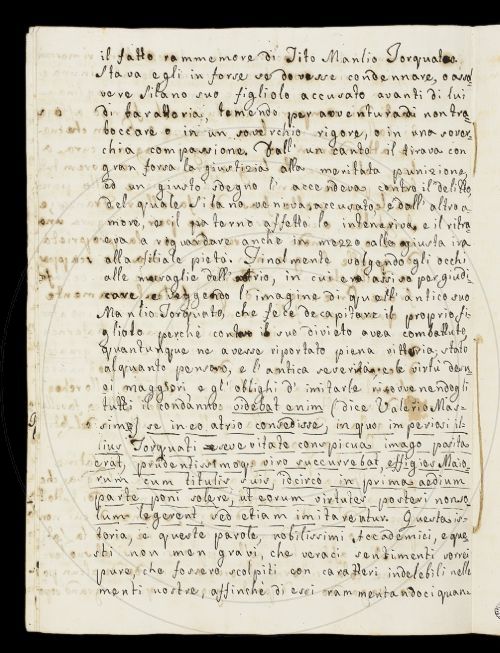 il fatto rammemore di Tito Manlio Torquato.
Stava egli in forse se dovesse condennare, o assol
vere Silano suo figliolo accusato avanti di lui
di baratteria, temendo per avventura di non tra
boccare o in un soverchio rigore, o in una sover
chia compassione. Dall' un canto il tirava con
gran forsa la giustizia alla meritata punizione,
ed un giusto sdegno l' accendeva contro il delitto,
del quale Silano veniva accusato, e dall' altro a
more, e il paterno affetto lo inteneriva, e il ritra
eva a riguardare anche in mezzo alla giusta ira
alla filiale pietà. Finalmente volgendo gli occhi
alle muraglie dell' atrio, in cui era assiso per giudi
care, e veggendo l' imagine di quell' antico suo
Manlio Torquato, che fece decapitare il proprio fi
gliolo perchè contro il suo divieto avea combattuto,
quantunque ne avesse riportato piena vittoria, stato
alquanto pensoso, e l' antica severità, e le virtù de su
oi maggiori e gl' oblighi d' imitarle risovenendogli
tutti il condannò videbat enim (dice Valerio Mas-
simo) se in eo atrio consedisse, in quo imperiosi il-
lius Torquati severitate conspicua imago posita
erat, prudentissimoq. viro succurrebat, effigies Maio
rum cum titulis suis, idcirco in prima aedium
parte poni solere, ut eorum virtutes posteri non so
lum legerent sed etiam imitarentur. Questa is-
toria, e queste parole, nobilissimi Accademici, e que
sti non men gravi, che veraci sentimenti vorrei
pure, che fossero scolpiti con caratteri indelebili nelle
menti nostre, affinchè di essi rammentandoci quan